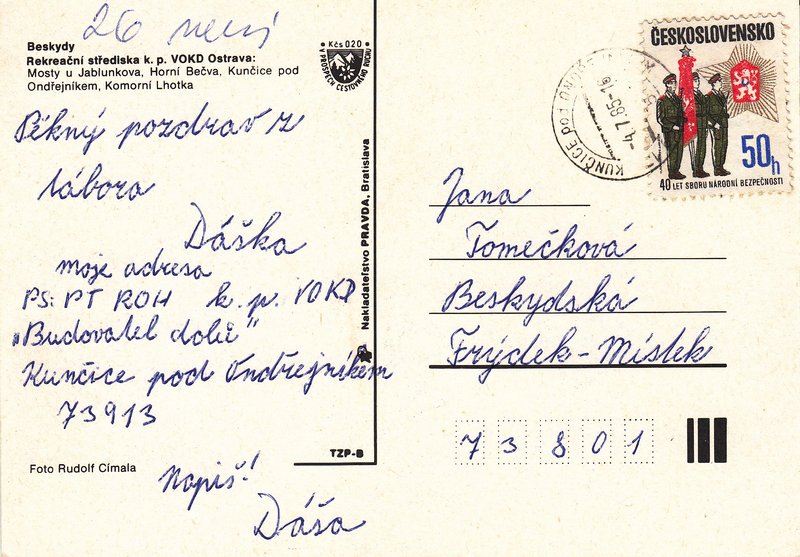 26 není
Beskydy
Rekreační střediska k. p. VOKD Ostrava:
Mosty u Jablunkova, Horní Bečva, Kunčice pod
Ondřejníkem, Komorní Lhotka
Kčs 020
V PROSPĚCH CESTOVNÉHO RUCHU
Pěkný pozdrav z
tábora
Dáška
moje adresa
PS: PT ROH k. p. VOKD
„Budovatel dolů"
Kunčice pod Ondřejníkem
73913
Napiš!
Dáša
Foto Rudolf Címala
TZP-B
Nakladateľstvo PRAVDA, Bratislava
KUNČICE POD ONDŘEJ
-4.7.85-16
ČESKOSLOVENSKO
50h
40 LET SBORU NÁRODNÍ BEZPEČNOSTI
Jana
Tomečková
Beskydská
Frýdek-Místek
73801